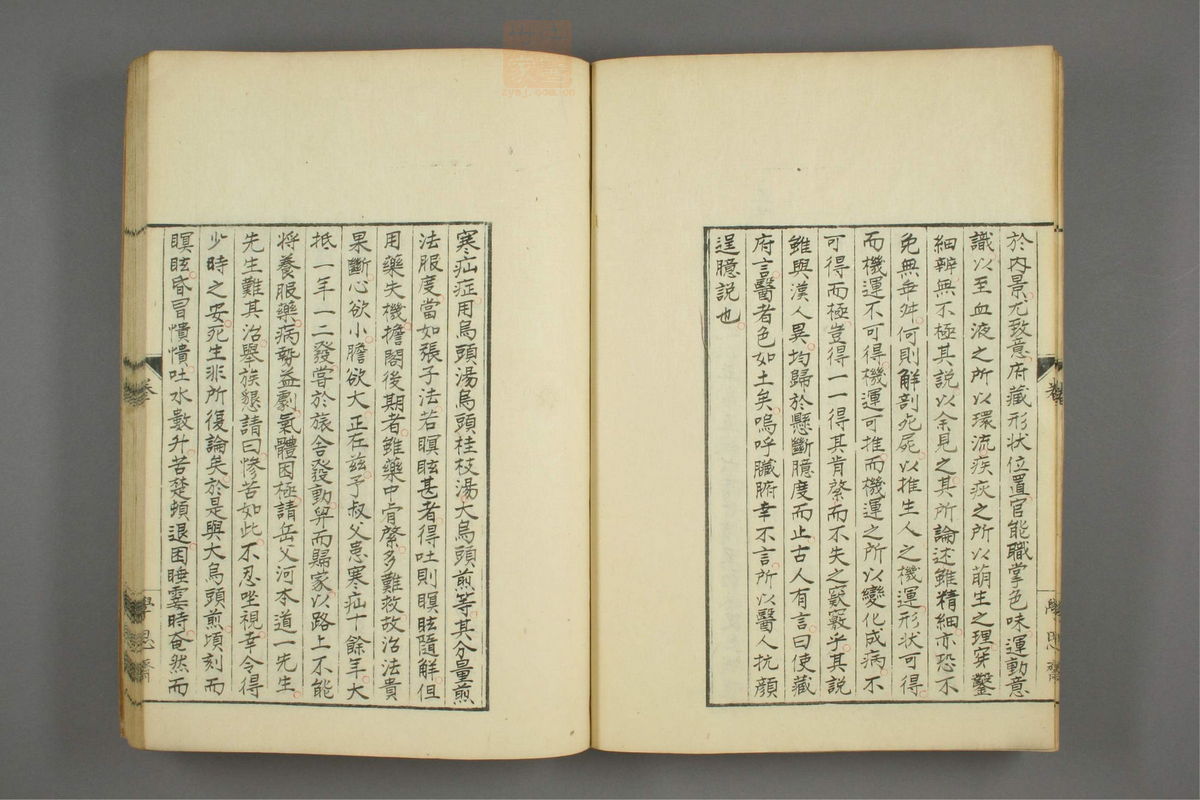 於內景尤致意府藏形狀位置官能職掌色味運動意
識以至血液之所以環流疾疢之所以萌生之理穿鑿
細辨無不極其說以余見之其所論述雖精細亦恐不
免無舛何則解剖死屍以推生人之機運形狀可得
而機運不可得機運可推而機運之所以變化成病不
可得而極豈得一一得其肯綮而不失之窾竅乎其說
雖與漢人異均歸於懸斷臆度而止古人有言曰使藏
府言醫者色如土矣嗚呼臟腑幸不言所以醫人抗顔
逞臆説也
寒疝症用烏頭湯烏頭桂枝湯大烏頭煎等其分量煎
法服度當如張子法若瞑眩甚者得吐則瞑眩隨解但
用藥失機擔閣後期者雖藥中肯綮多難救故治法貴
果斷心欲小膽欲大正在茲予叔父患寒疝十餘年大
抵一年一二發嘗於旅舎發動舁而歸家以路上不能
將養服藥病勢益劇氣體困極請岳父河本道一先生
先生難其治舉族懇請曰慘苦如此不忍坐視幸令得
少時之安死生非所復論矣於是與大烏頭煎頃刻而
瞑眩昏冒憒憒吐水數升苦楚頓退困睡霎時奄然而
卷
學思齋
學思齋